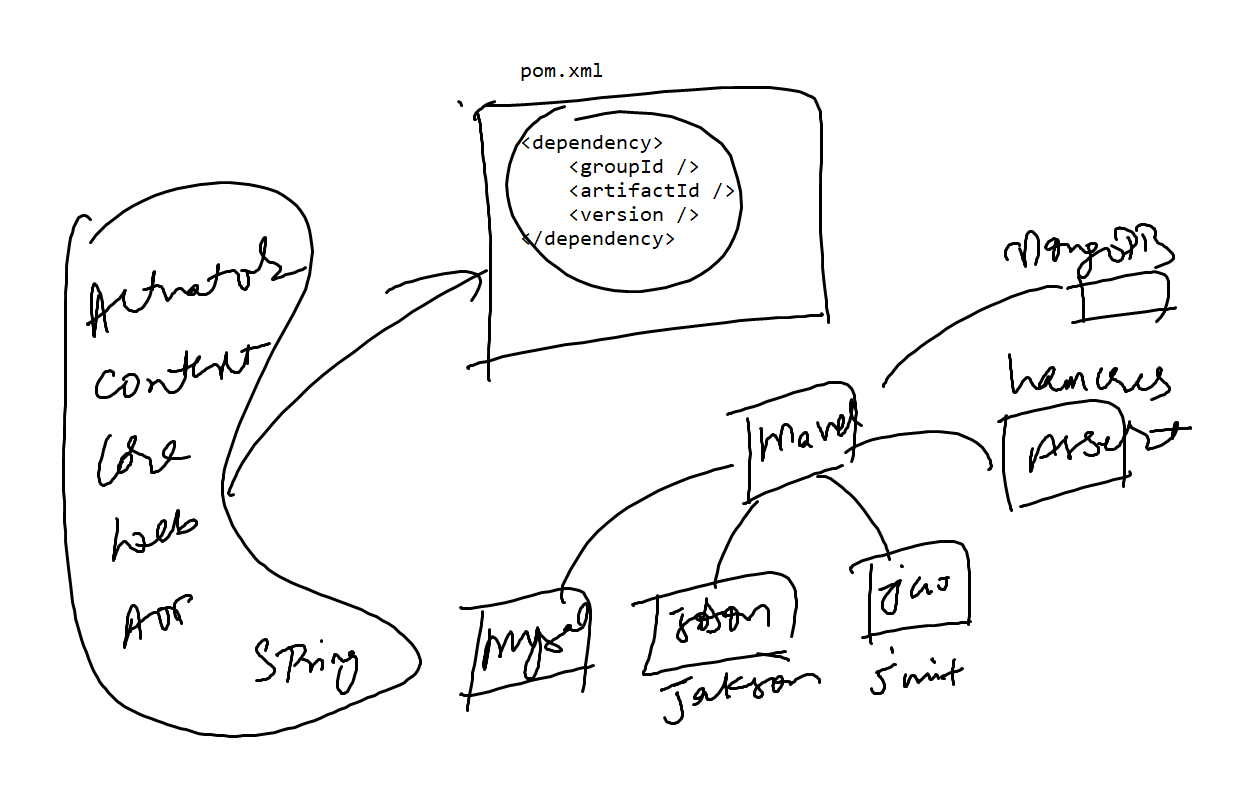 pom.xml
<dependency>
<groupId />
<artifactId />
<version />
</dependency>
Actuator
Context
Core
Web
AOP
SPring
MongoDB
Assert
Maven
mysql
json
jakson
junit